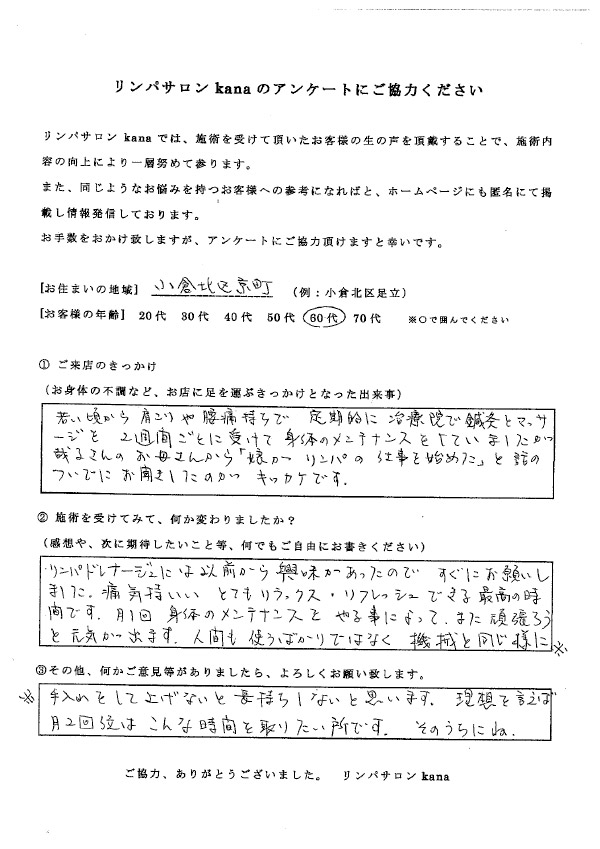 リンパサロン kana のアンケートにご協力ください
リンパサロン kana では、施術を受けて頂いたお客様の生の声を頂戴することで、施術内
容の向上により一層努めて参ります。
また、同じようなお悩みを持つお客様への参考になればと、ホームページにも匿名にて掲
載し情報発信しております。
お手数をおかけ致しますが、アンケートにご協力頂けますと幸いです。
[お住まいの地域] 小倉北区京町 (例：小倉北区足立)
[お客様の年齢] 20代 30代 40代 50代 60代 70代 ※○で囲んでください
① ご来店のきっかけ
(お身体の不調など、お店に足を運ぶきっかけとなった出来事)
若い頃から肩こりや腰痛持ちで 定期的に治療院で鍼灸とマッサ
ージを 2週間ごとに受けて身体のメンテナンスをしていましたが
さんのお母さんから「娘が リンパの仕事を始めた」と話の
ついでにお聞きしたのが キッカケです.
② 施術を受けてみて、何か変わりましたか？
(感想や、次に期待したいこと等、何でもご自由にお書きください)
リンパドレナージュには以前から興味があったので すぐにお願いし
ました. 痛気持いい とてもリラックス・リフレッシュできる最高の時
間です. 月1回 身体のメンテナンスを やる事によって、また頑張ろう
と元気が出ます. 人間も使うばかりではなく 機械と同じ様に ※
③その他、何かご意見等がありましたら、よろしくお願い致します。
※ 手入れをして上げないと長持ちしないと思います. 理想を言えば
月2回位は こんな時間を取りたい所です. そのうちにね.
ご協力、ありがとうございました。 リンパサロン kana